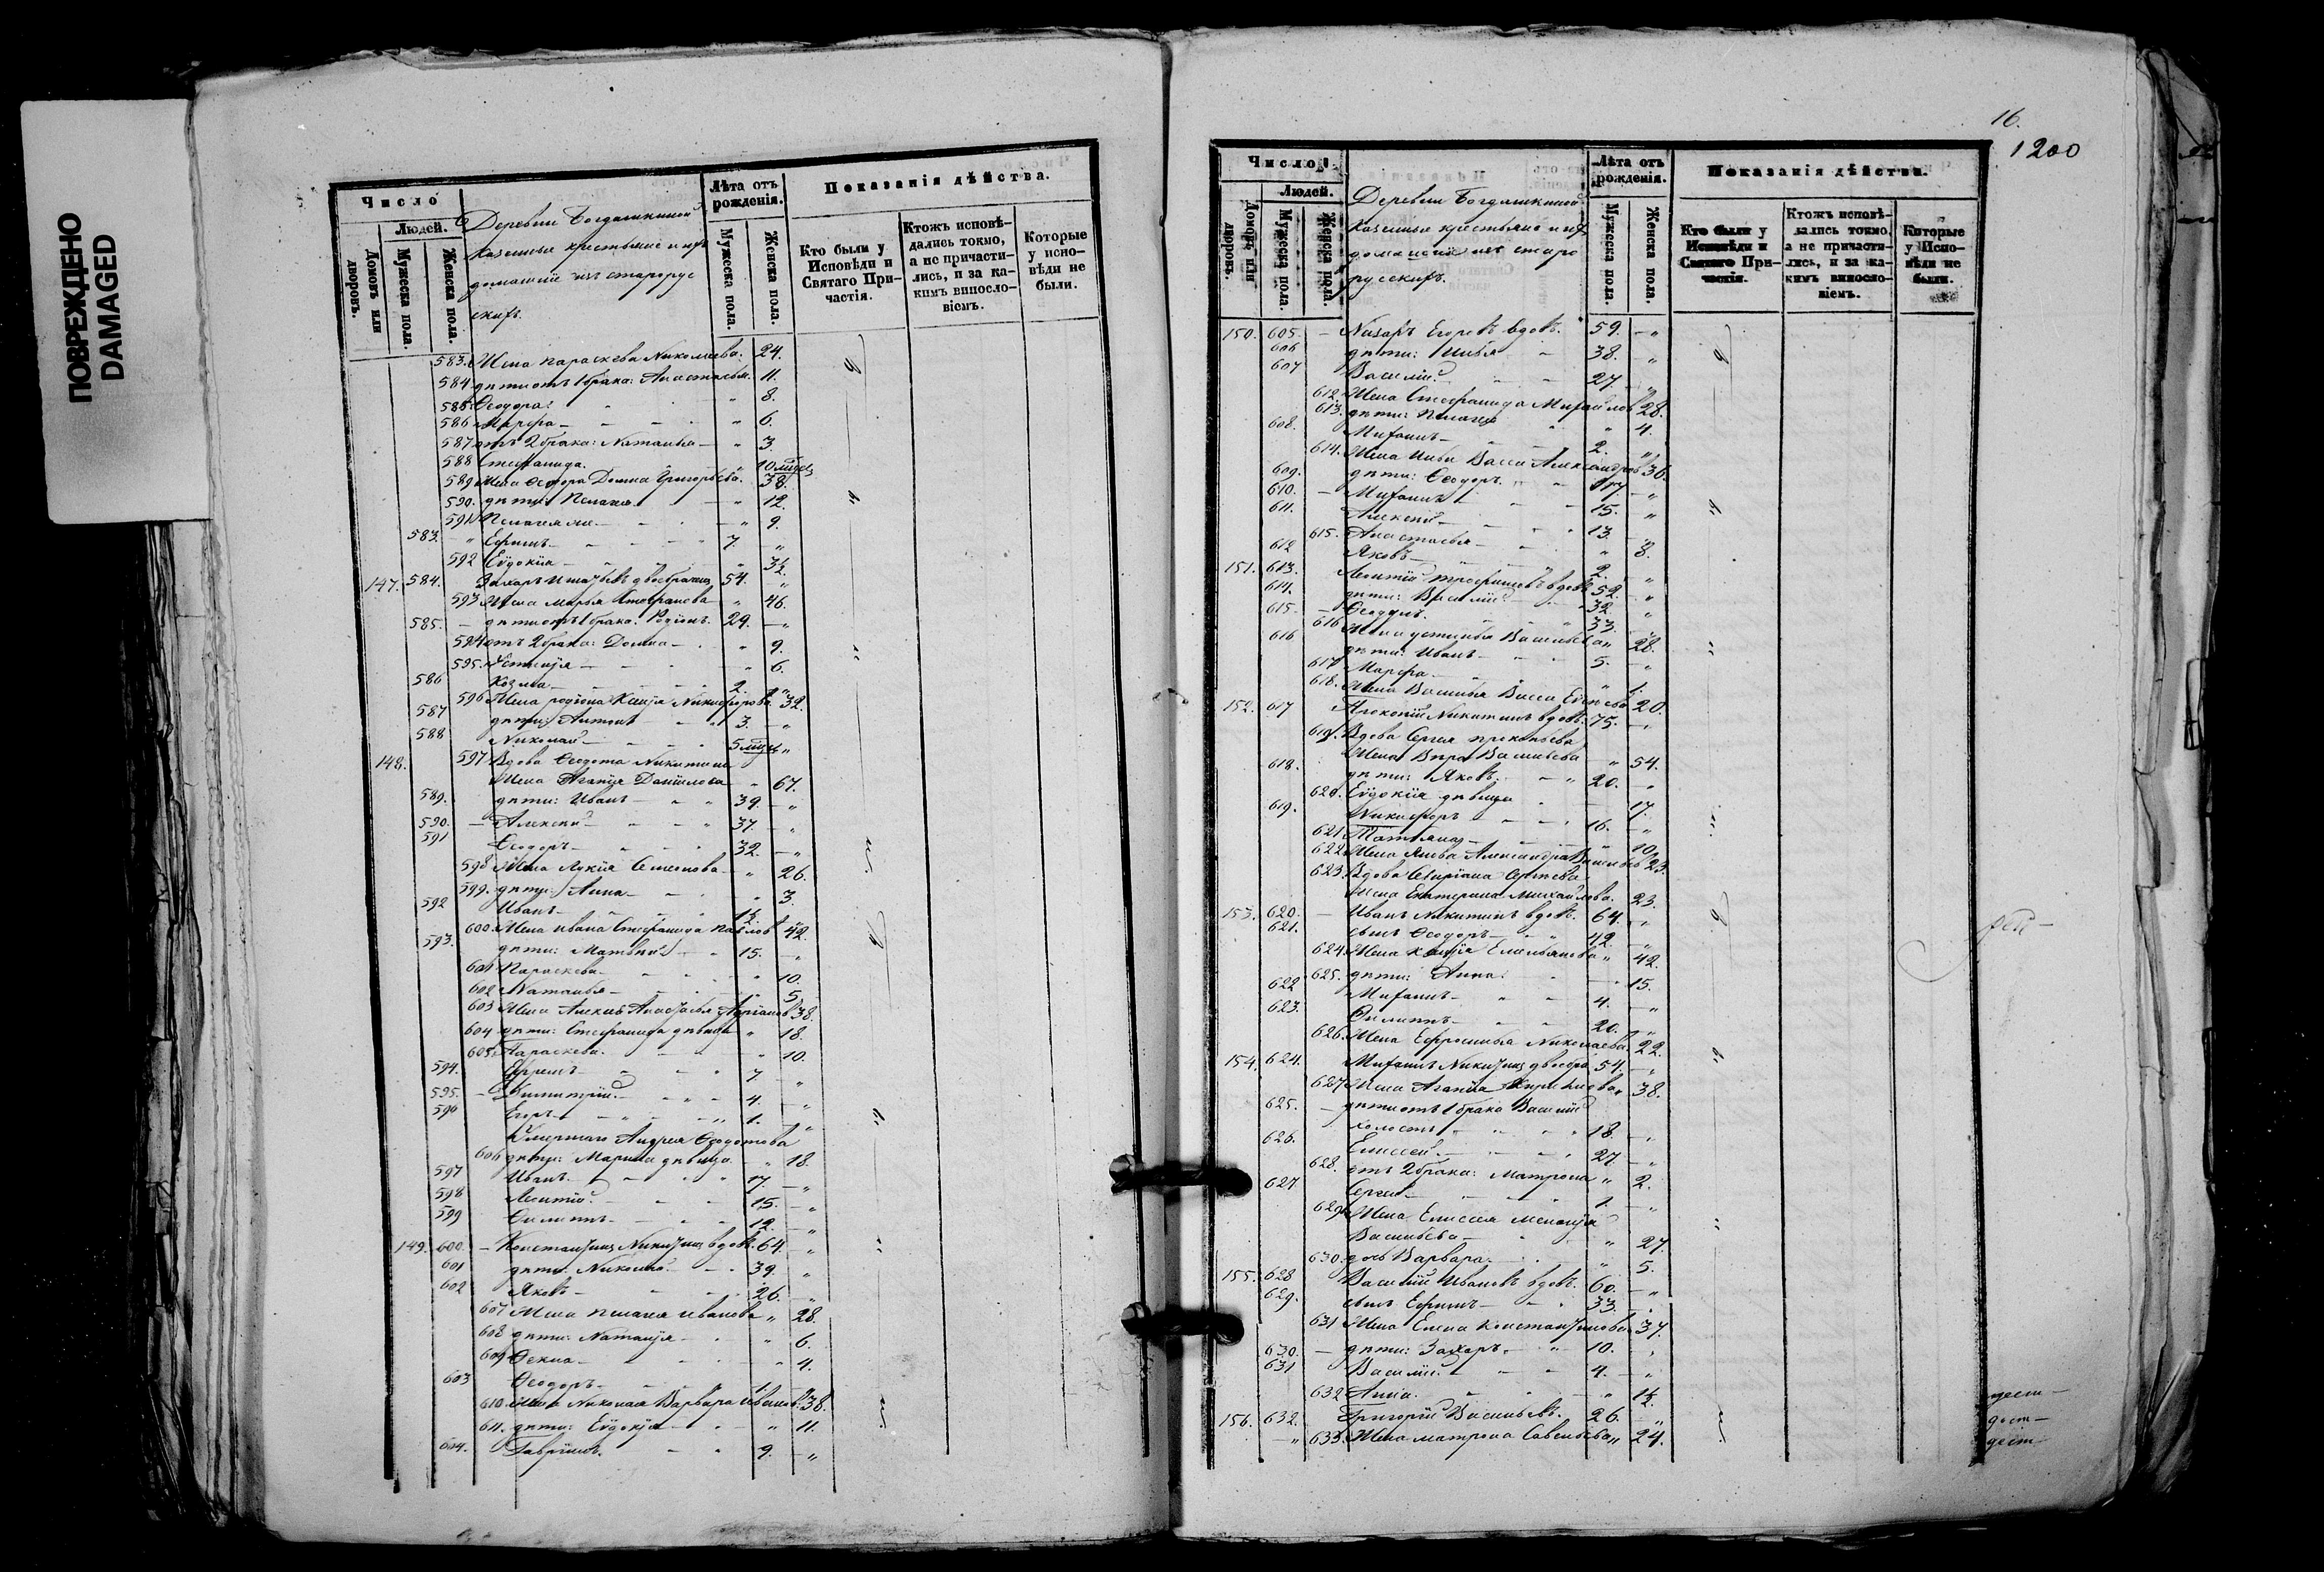 ПОВРЕЖДЕНО
DAMAGED
Число
Людей.
Домовъ или дворовъ.
Мужеска пола.
Женска пола.
Деревни Богдашкиной
казенные крестьяне и ихъ
домашніе изъ старорус
скихъ.
Лѣта отъ рожденія.
Мужеска пола.
Женска пола.
Показанія дѣйства.
Кто были у Исповѣди и Святаго Причастія.
Ктожъ исповѣдались токмо, а не причастились, и за какимъ винословіемъ.
Которые у исповѣди не были.
583. Жена Параскева Николаева. 24.
584 дѣти отъ 1 брака: Анастасья. 11.
585 Ѳеодора " 8.
586 Марфа " 6.
587 отъ 2 брака: Наталья " 3.
588 Стефанида. " 10 мѣсяц
589 Жена Ѳедора Домна Григорьева. 38.
590. дѣти: Пелагея. " 12.
591 Пелагея же " 9.
583. " Ефимъ 7. "
592 Евдокія "
147. 584. Захаръ двоебрачн. 54. "
593 Жена Марья Стефанова " 46.
585. дѣти отъ 1 брака: Родіонъ. 29. "
594 отъ 2 брака: Домна " 9.
595. Устинія " 6.
586 Козма 2. "
596 Жена Родіона Ксенія Никифорова. " 32.
587 дѣти: Антонъ 3. "
588 Николай 5 мѣсц. "
148. 597 Вдова Ѳедота Никитина
Жена Агапія Данилова " 67.
589. дѣти: Иванъ 39. "
590. Алексѣй 37. "
591 Ѳеодоръ 32. "
598 Жена Лукія Семенова " 26.
599. дѣти: Анна " 3.
592 Иванъ
600. Жена Ивана Стефанида Павлов 42.
593. дѣти: Матвѣй 15. "
601 Параскева " 10.
602 Наталья " 5.
603 Жена Алексѣя Анастасья 38.
604 дѣти: Стефанида дѣвица " 18.
605. Параскева. " 10.
594. Ефремъ 7. "
595. Димитрій 4. "
596 Егоръ 1. "
Умершаго Андрея Ѳедотова
606 дѣти: Марина дѣвица " 18.
597 Иванъ 17. "
598 Леонтій 15. "
599 Филиппъ 12. "
149. 600. Константинъ Никитинъ вдовъ. 64. "
601 дѣти: Николай 39. "
602 Яковъ 26. "
607 Жена Пелагея Иванова " 28.
608 дѣти: Наталія " 6.
609 Ѳекла " 4.
603 Ѳеодоръ 1. "
610. Жена Николая Варвара Иванов. 38.
611. дѣти: Евдокія " 11.
604. Гавріилъ. 9. "
16.
1200
Число
Людей.
Домовъ или дворовъ.
Мужеска пола.
Женска пола.
Деревни Богдашкиной
казенные крестьяне и ихъ
домашніе изъ старо
русскихъ.
Лѣта отъ рожденія.
Мужеска пола.
Женска пола.
Показанія дѣйства.
Кто были у Исповѣди и Святаго Причастія.
Ктожъ исповѣдались токмо, а не причастились, и за какимъ винословіемъ.
Которые у Исповѣди не были.
150. 605. Назаръ Егоровъ вдовъ. 59. "
606 дѣти: Илья 38. "
607 Василій 27. "
612. Жена Стефанида Михайлов 28.
613. дѣти: Пелагея " 4.
608. Михаилъ 2. "
614. Жена Ильи Васса Александров 36.
609. дѣти: Ѳеодоръ 17. "
610. Михаилъ 15. "
611. Алексѣй 13. "
615. Анастасья " 8.
612 Яковъ 2. "
151. 613. Леонтій Трофимовъ вдовъ 52. "
614. дѣти: Василій 32. "
615. Ѳеодулъ 33. "
616 Жена Устинья Васильева " 28.
616 дѣти: Иванъ 5. "
617 Марфа " 1.
618. Жена Василья Васса 20.
152. 617 Прокопій Никитинъ вдовъ. 75. "
619. Вдова Сергея Прокопьева
Жена Вѣра Васильева " 54.
618. дѣти: Яковъ 20. "
620. Евдокія дѣвица 17.
619. Никифоръ 16. "
621 Татьяна " 10.
622 Жена Якова Александра Васильев 23.
623. Вдова Сергѣева
Жена Екатерина Михайлова. 23.
153. 620. Иванъ Никитинъ вдовъ. 64. "
621. сынъ Ѳеодоръ 42. "
624. Жена Ксенія Емельянова " 42.
625. дѣти: Анна 15.
622 Михаилъ 4. "
623. Филиппъ 20. "
626. Жена Ефросинья Николаева. 22.
154. 624. Михаилъ Никитинъ двоебра 54. "
627 Жена Агапія " 38.
625. дѣти отъ 1 брака Василій
холостъ 18. "
626. Елисей 27. "
628. отъ 2 брака: Матрона " 2.
627 Сергѣй 1. "
629. Жена Елисея Меланія
Васильева " 27.
630. дочь Варвара " 5.
155. 628 Василій Ивановъ вдовъ. 60. "
629. сынъ Ефимъ 33. "
631 Жена Елена Константинова 37.
630. дѣти: Захаръ 10. "
631 Василій 4. "
632 Анна. "
156. 632. Григорій Васильевъ. 26. "
" 633. Жена Матрона Савельева " 24.